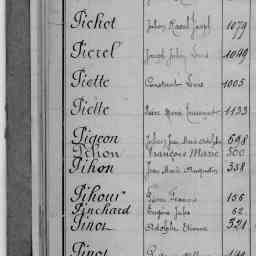 Pichot Julien Raoul Joseph 1079
Pierel Joseph Julien Louis 1049
Piette Constant Louis 1005
Piette Pierre Marie Innocent 1133
Pigeon Jules Jean Marie Adolphe 698
Pihon François Marie 360
Pihon Jean Marie Augustin 338
Pihour Pierre François 156
Pinchard Eugène Jules 62
Pinot Adolphe Etienne 321
Pinot